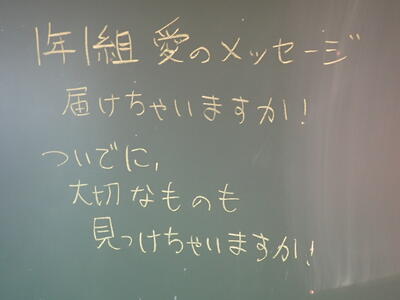 1年1組 愛のメッセージ
届けちゃいますか!
ついでに,
大切なものも
見つけちゃいますか!